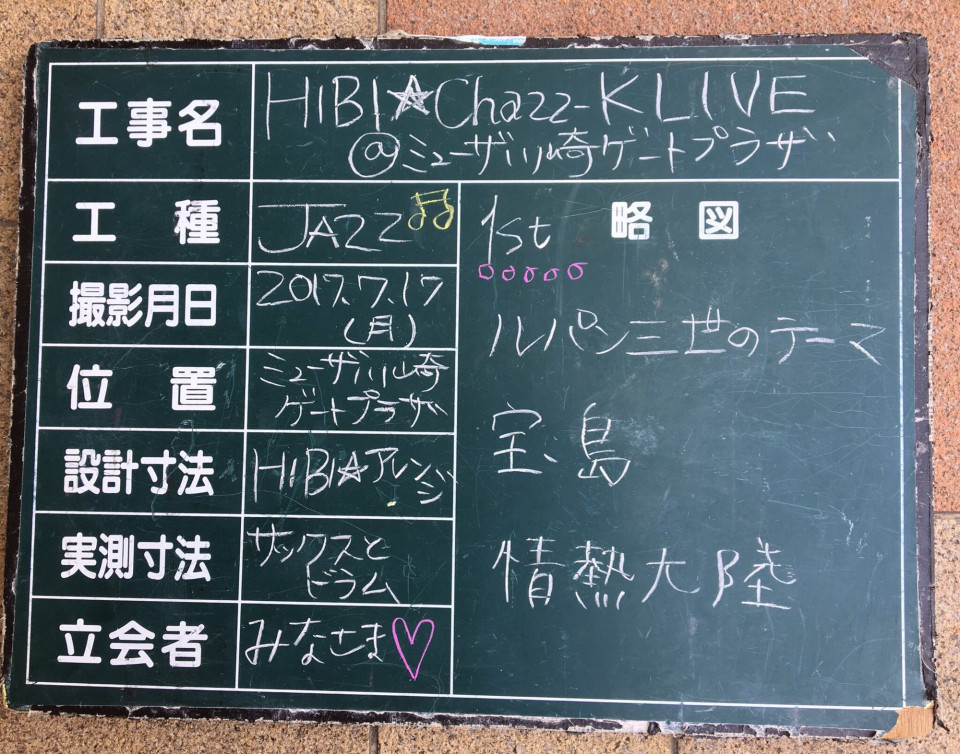 工事名
HIBI☆Chazz-K LIVE
@ミューザ川崎ゲートプラザ
工種
JAZZ♫
撮影月日
2017.7.17
(月)
位置
ミューザ川崎
ゲートプラザ
設計寸法
HIBI☆アレンジ
実測寸法
サックスと
ドラム
立会者
みなさま♡
略図
1st
ルパン三世のテーマ
宝島
情熱大陸